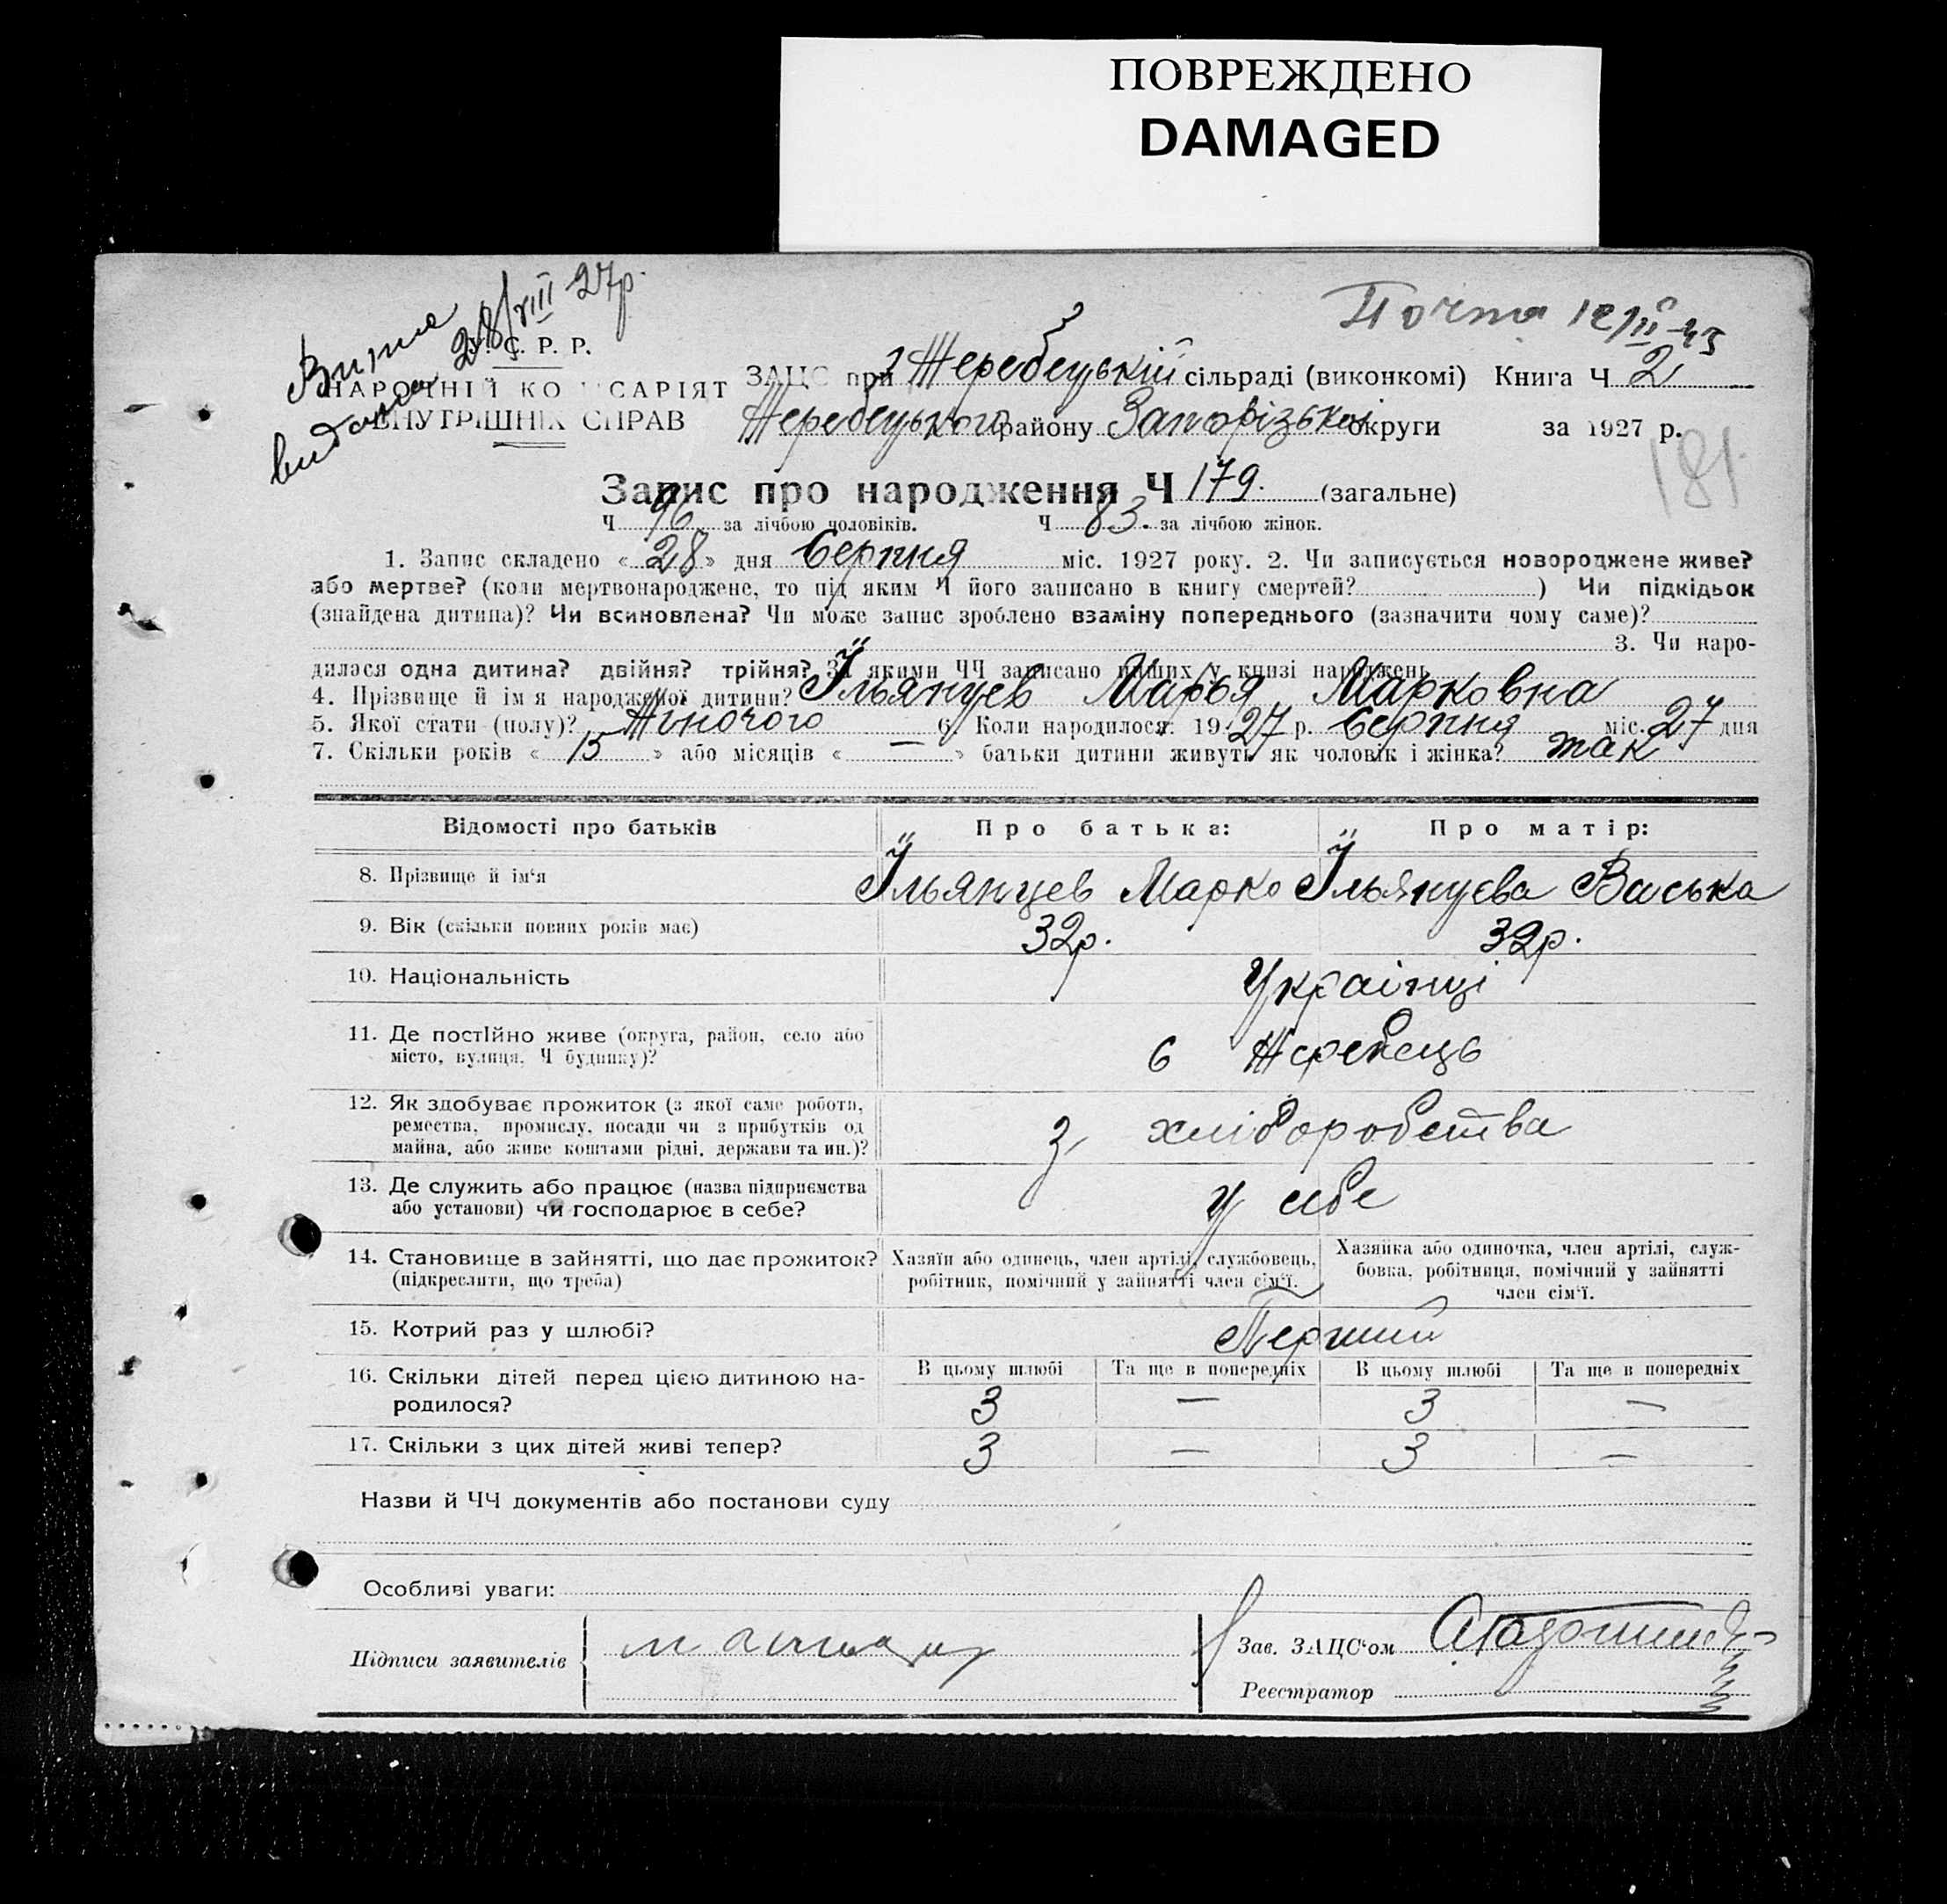 ПОВРЕЖДЕНО
DAMAGED
Витяг видано 28/VIII 27р.
Почта 12/II-45
У. С. Р. Р.
НАРОДНІЙ КОМІСАРІЯТ
ВНУТРІШНІХ СПРАВ
ЗАЦС при Жеребецькій сільраді (виконкомі) Книга Ч 2
Жеребецького району Запорізької округи за 1927 р.
181
Запис про народження Ч 179. (загальне)
Ч 96 за лічбою чоловіків. Ч 83. за лічбою жінок.
1. Запис складено «28» дня Серпня міс. 1927 року. 2. Чи записується новороджене живе?
або мертве? (коли мертвонароджене, то під яким Ч його записано в книгу смертей? ) Чи підкідьок
(знайдена дитина)? Чи всиновлена? Чи може запис зроблено взаміну попереднього (зазначити чому саме)?
3. Чи наро-
дилася одна дитина? двійня? трійня? За якими ЧЧ записано инших у книзі народжень
4. Прізвище й ім я народженої дитини? Ільянцев Марья Марковна
5. Якої стати (полу)? Жіночого 6. Коли народилося: 1927 р. Серпня міс. 27 дня
7. Скільки років « 15 » або місяців « — » батьки дитини живуть як чоловік і жінка? так
Відомості про батьків Про батька: Про матір:
8. Прізвище й ім‘я Ільянцев Марко Ільянцева Васька
9. Вік (скільки повних років має) 32р. 32р.
10. Національність Українці
11. Де постІйно живе (округа, район, село або
місто, вулиця, Ч будинку)? с Жеребець
12. Як здобуває прожиток (з якої саме роботи,
ремества, промислу, посади чи з прибутків од
майна, або живе коштами рідні, держави та ин.)? з хліборобства
13. Де служить або працює (назва підприємства
або установи) чи господарює в себе? У себе
14. Становище в зайнятті, що дає прожиток?
(підкреслити, що треба)
Хазяїн або одинець, член артілі, службовець,
робітник, помічний у зайнятті член сім‘ї.
Хазяйка або одиночка, член артілі, служ-
бовка, робітниця, помічний у зайнятті
член сім‘ї.
15. Котрий раз у шлюбі? Перший
В цьому шлюбі Та ще в попередніх В цьому шлюбі Та ще в попередніх
16. Скільки дітей перед цією дитиною на-
родилося? 3 — 3 —
17. Скільки з цих дітей живі тепер? 3 — 3 —
Назви й ЧЧ документів або постанови суду
Особливі уваги:
Підписи заявителів
Зав. ЗАЦС‘ом
Реєстратор